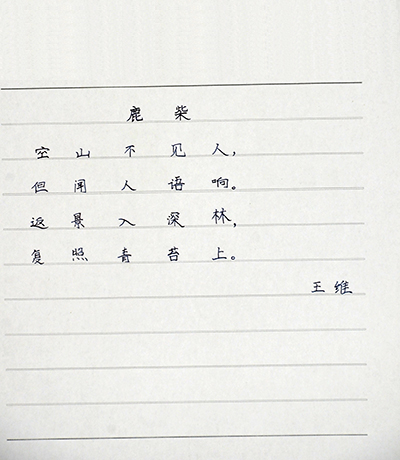 鹿 柴
空 山 不 见 人，
但 闻 人 语 响。
返 景 入 深 林，
复 照 青 苔 上。
王 维